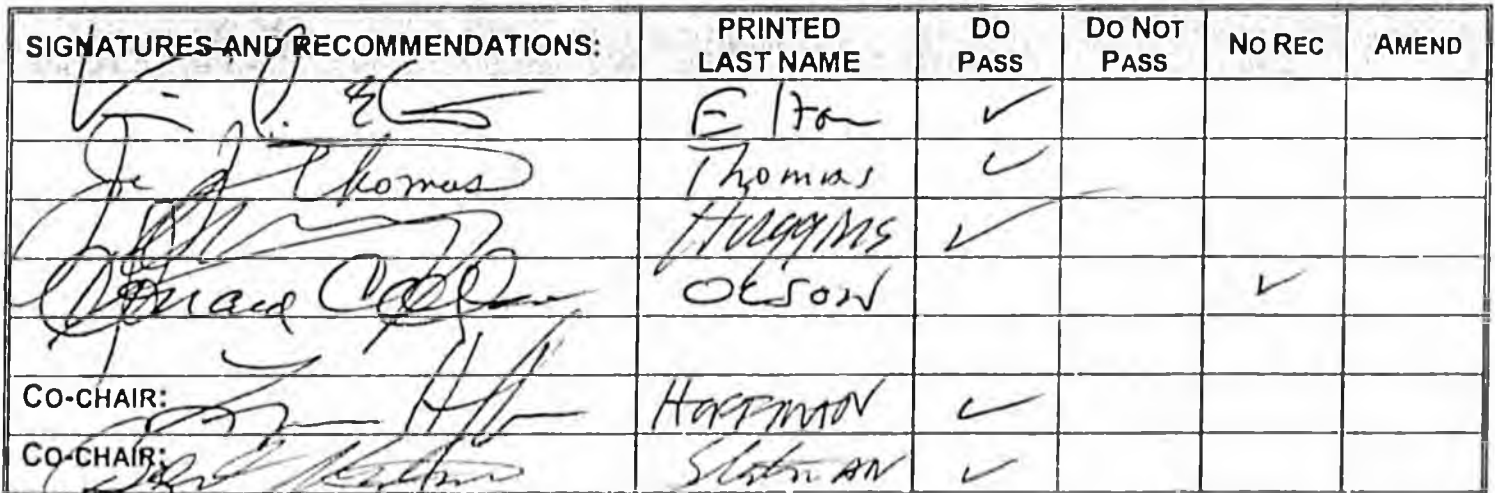 SIGNATURES AND RECOMMENDATIONS: PRINTED LAST NAME DO PASS DO NOT PASS NO REC AMEND
Elton ✓
Thomas Thomas ✓
Huggins ✓
Donald Olson OLSON ✓
CO-CHAIR: HOFFMAN ✓
CO-CHAIR: ✓